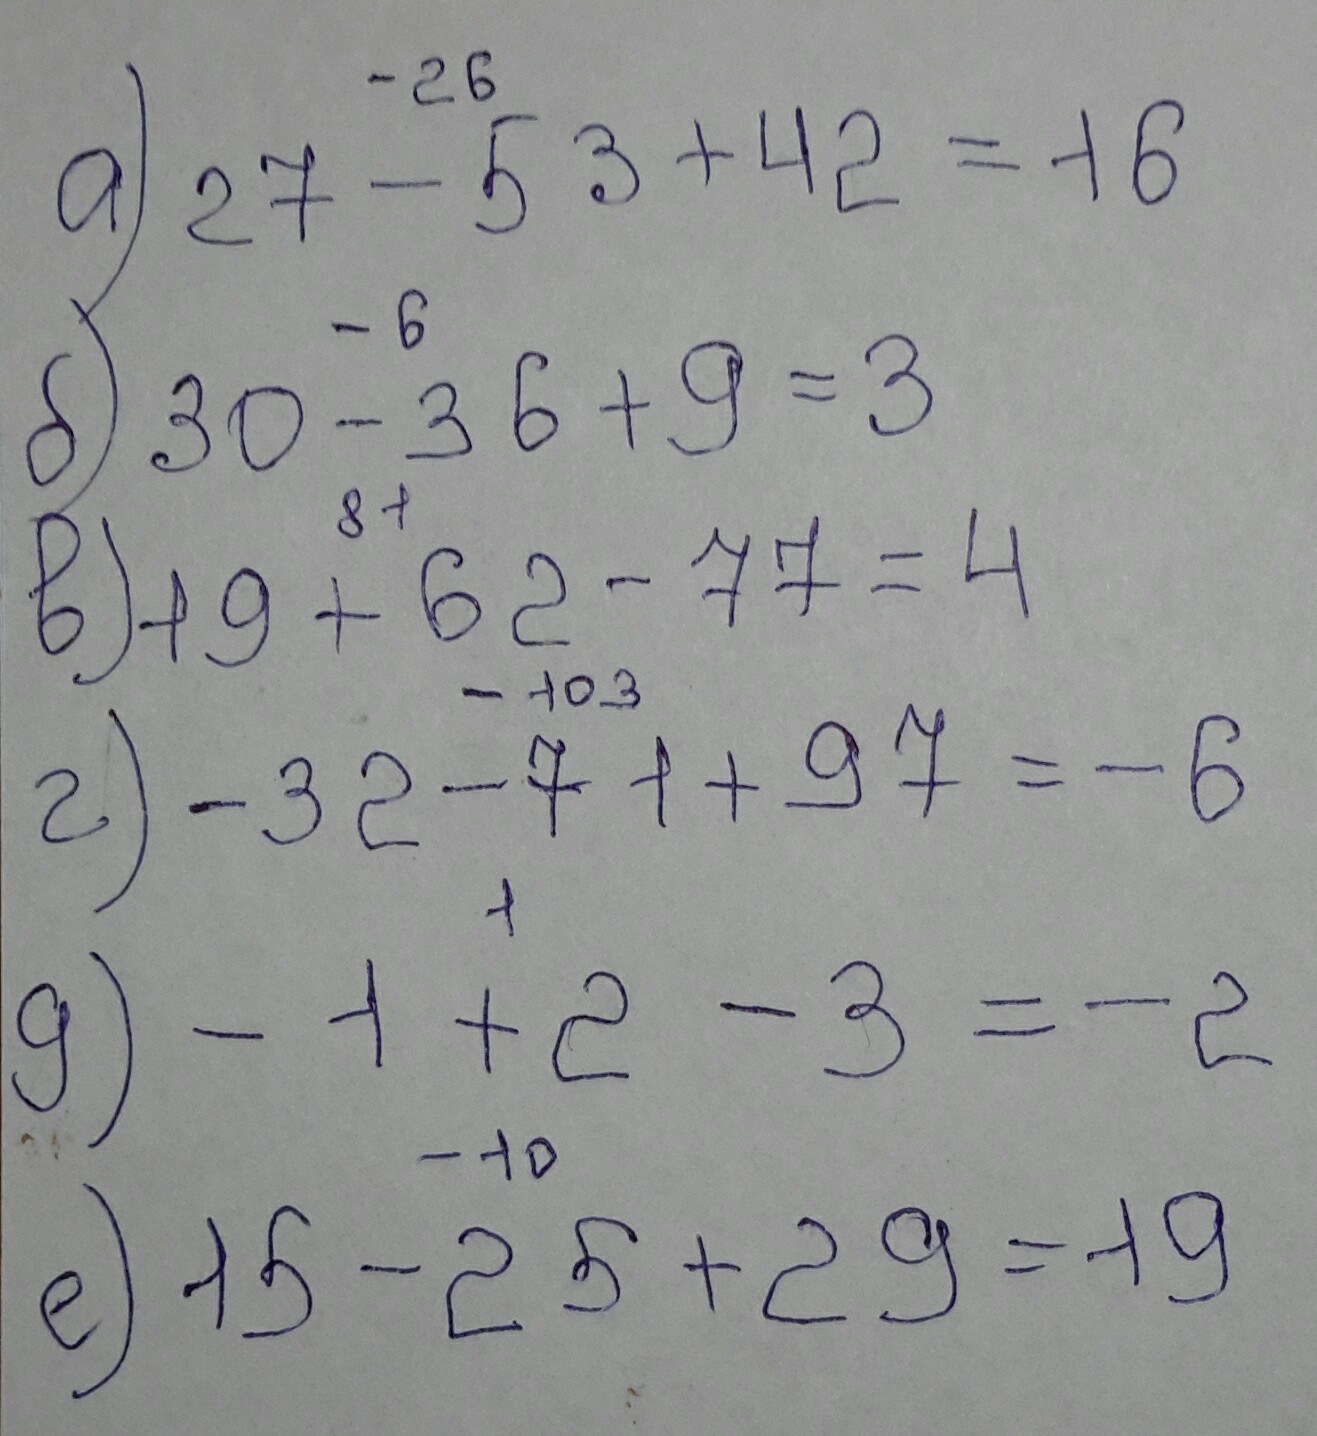 -26
а) 27 - 53 + 42 = 16
-6
б) 30 - 36 + 9 = 3
81
в) 19 + 62 - 77 = 4
-103
г) -32 - 71 + 97 = -6
1
д) -1 + 2 - 3 = -2
-10
е) 15 - 25 + 29 = 19